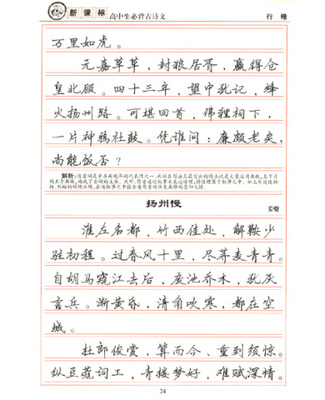 新课标
高中生必背古诗文
行楷
万里如虎。
元嘉草草,封狼居胥,赢得仓
皇北顾。四十三年,望中犹记,烽
火扬州路。可堪回首,佛狸祠下,
一片神鸦社鼓。凭谁问:廉颇老矣,
尚能饭否?
解析:
扬州慢
姜夔
淮左名都,竹西佳处,解鞍少
驻初程。过春风十里,尽荠麦青青。
自胡马窥江去后,废池乔木,犹厌
言兵。渐黄昏,清角吹寒,都在空
城。
杜郎俊赏,算而今、重到须惊。
纵豆蔻词工,青楼梦好,难赋深情。
24